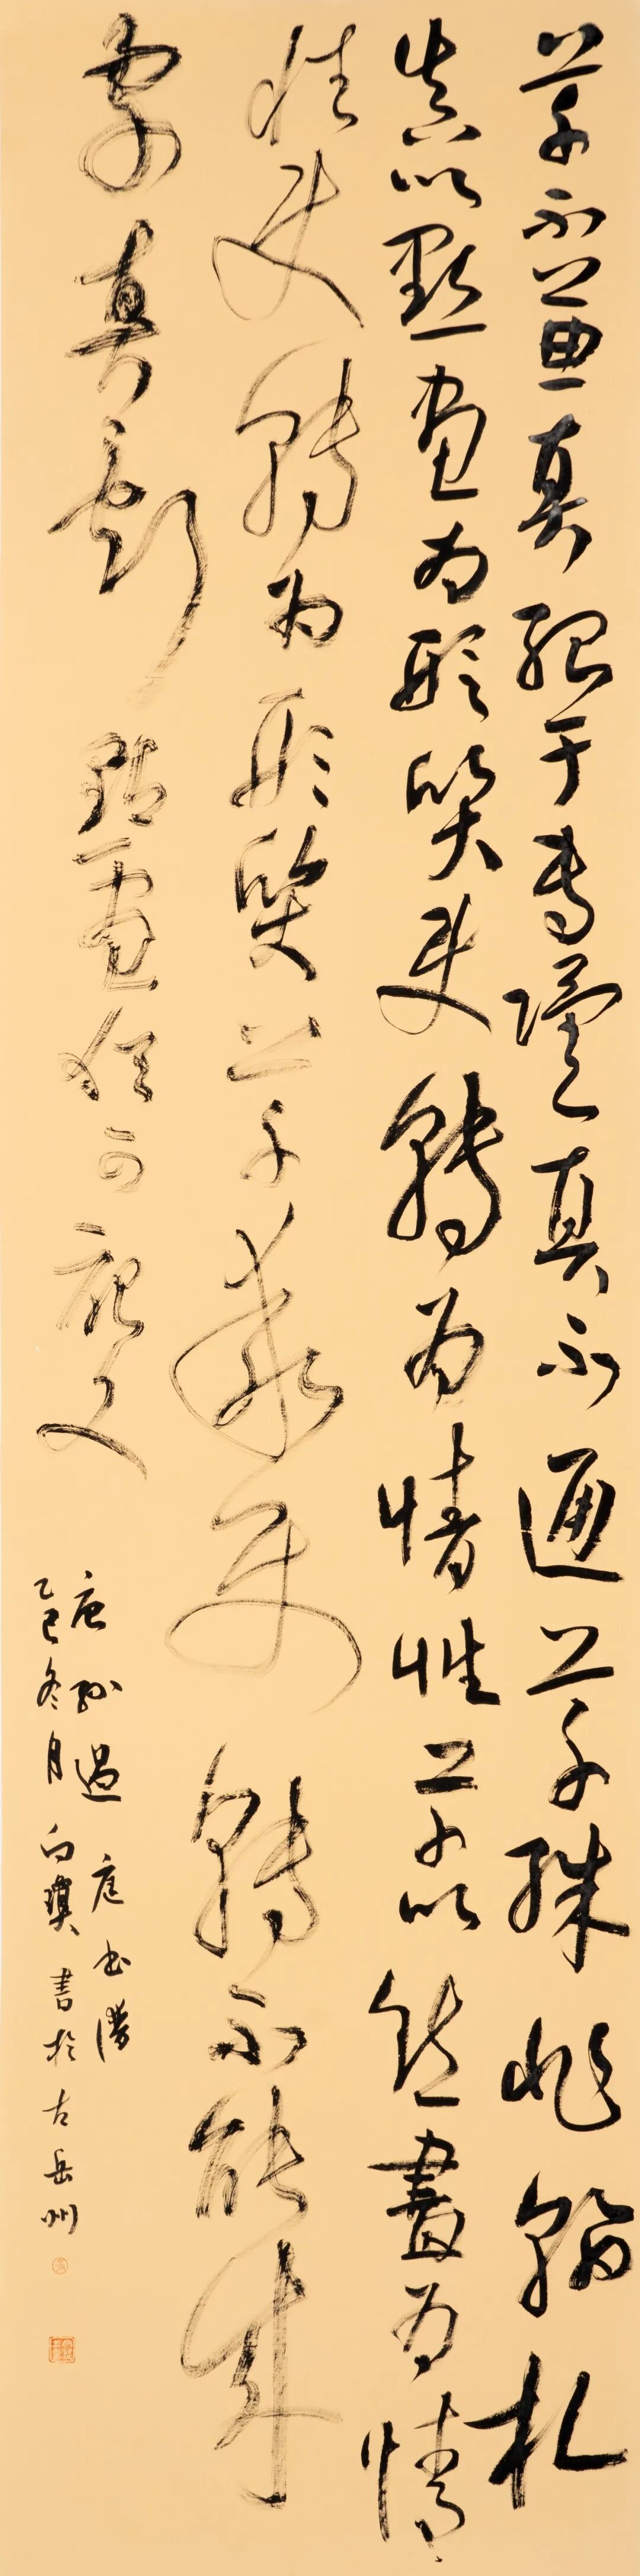 草不兼真殆于专谨真不通草殊非翰札
真以點画为形質使轉为情性草以點畫为情
性使轉为形質草乖使轉不能成
字真虧點畫猶可記文
唐孙過庭书譜
乙巳冬月向瓚書於古岳州